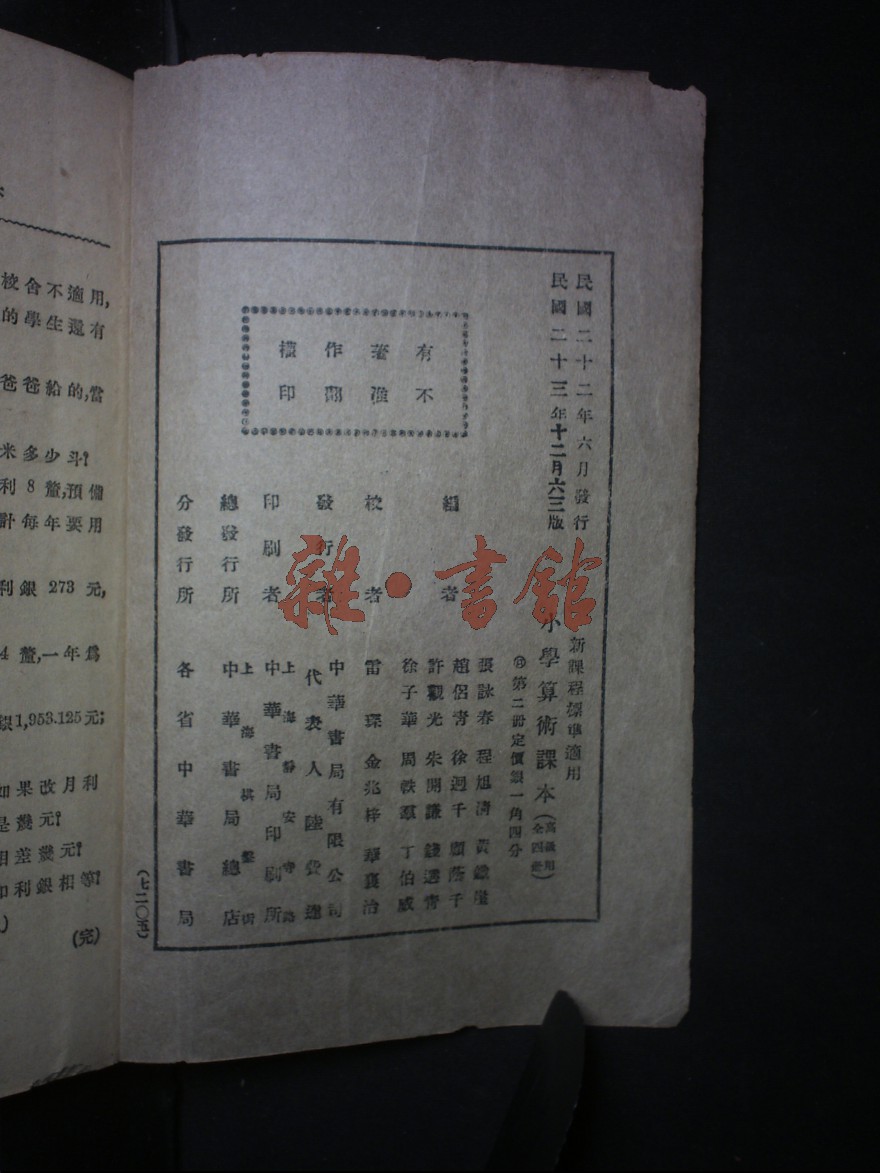 民國二十二年六月發行
民國二十三年十二月六三版
新課程標準適用
小學算術課本(高級用 全四册)
第二册定價銀一角四分
有著作權
不准翻印
編者
張詠春 程旭清 黃鐵崖
趙侶青 徐迥千 顧蔭千
許觀光 朱開謙 錢選青
徐子華 周軼羣 丁伯威
校者
雷琛 金兆梓 華襄治
發行者
中華書局有限公司
代表人 陸費逵
印刷者
上海靜安寺路
中華書局印刷所
總發行所
上海棋盤街
中華書局總店
分發行所
各省中華書局
(七二〇五)
雜·書館
校舍不適用,
的學生還有
爸爸給的,當
米多少斗?
利8釐,預備
計每年要用
利銀273元,
4釐,一年爲
銀1,953.125元;
如果改月利
是幾元?
相差幾元?
利銀相等?
)
(完)